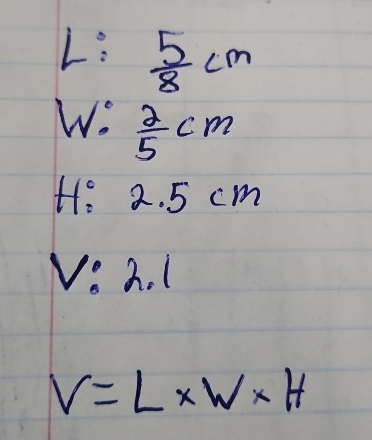 L: 5/8 cm
W: 2/5 cm
H: 2.5 cm
V: 2.1
V = L × W × H